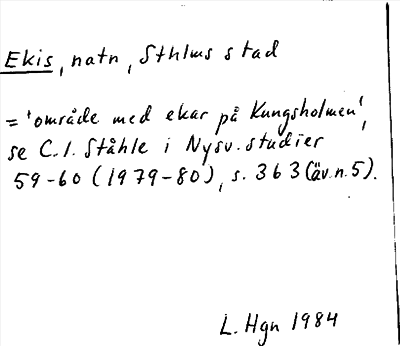 Ekis, natn, Sthlms stad
= 'område med ekar på Kungsholmen',
se C.I. Ståhle i Nysv. studier
59-60 (1979-80), s. 363 (äv. n. 5).
L. Hgn 1984